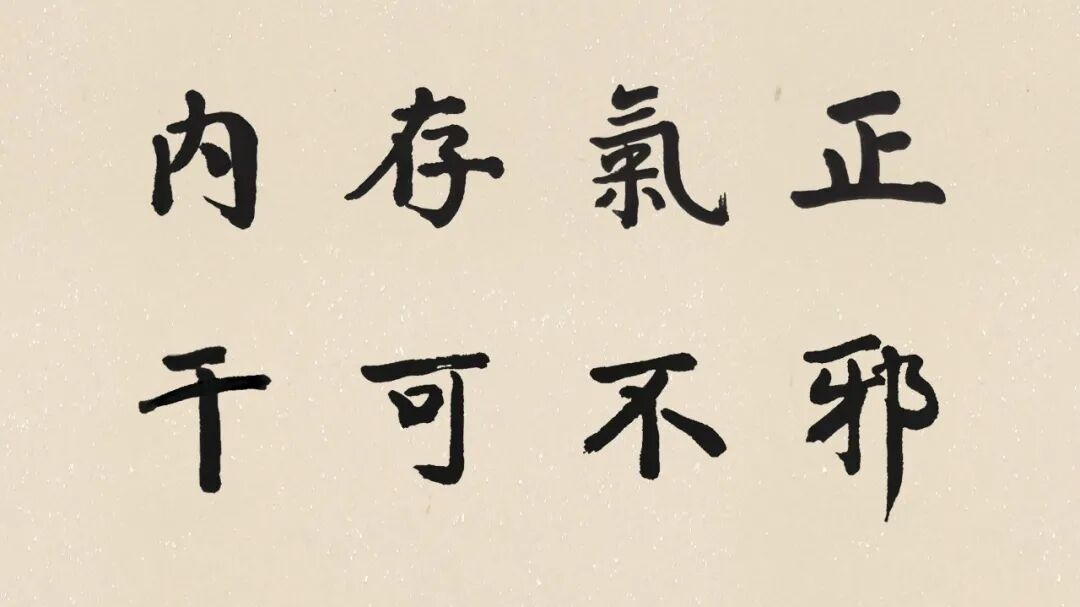 正氣存内
邪不可干